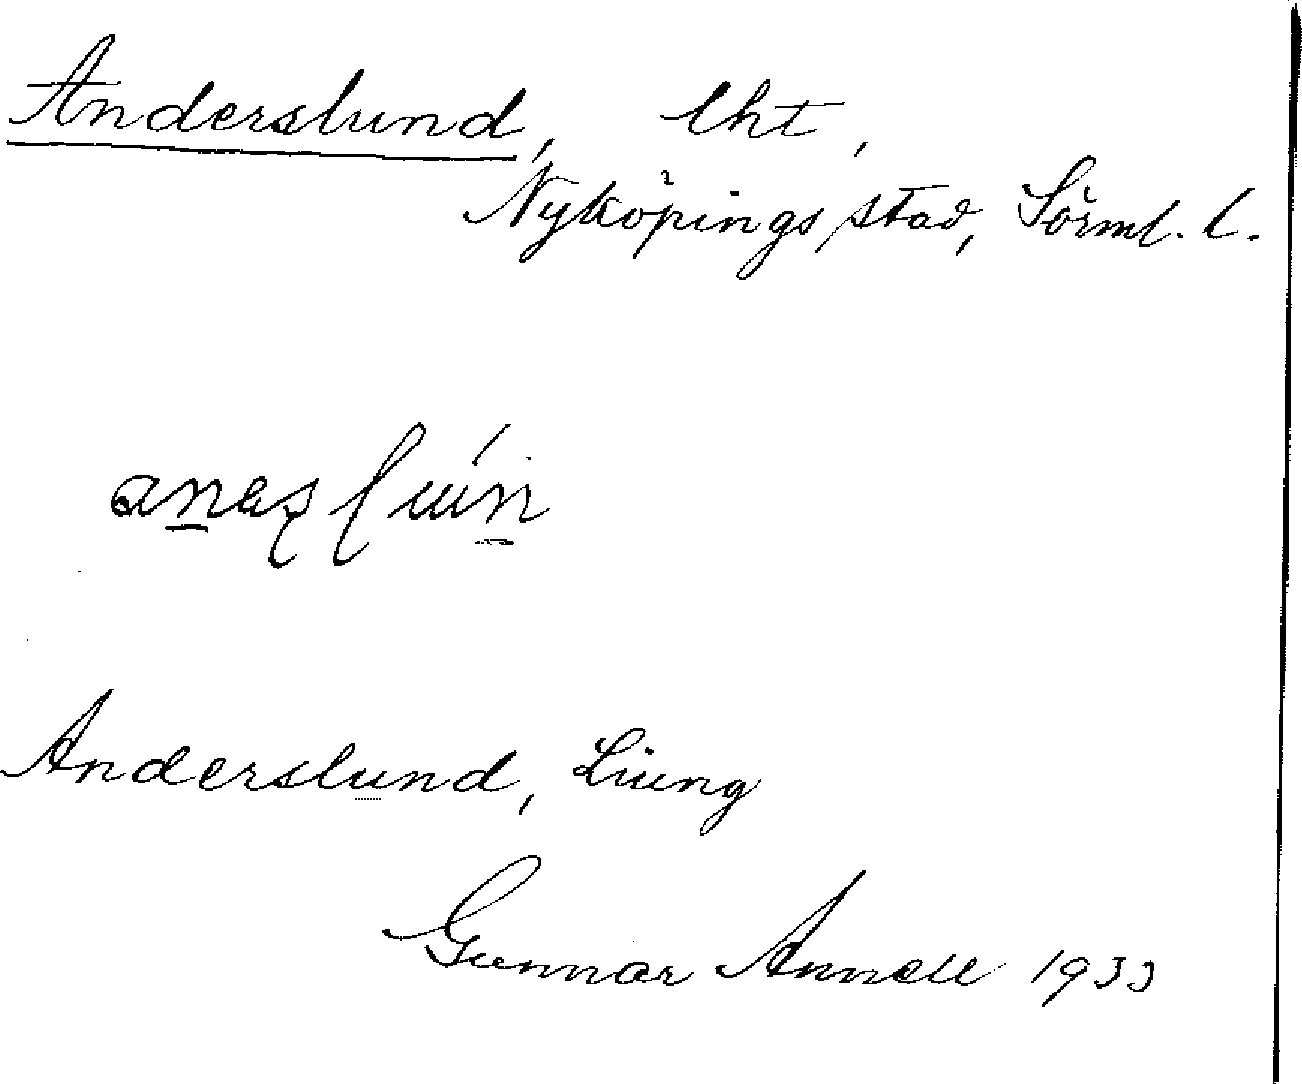 Anderslund, lht,
Nyköpings stad, Sörml. l.
Anderslund, Liung
Gunnar Annell 1933